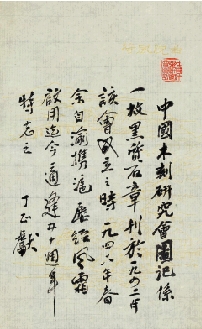 中國木刻研究會圖記係
一枚黑質石章刊於一九四二年
該會成立之時一九四六年春
余自渝攜滬歷經風霜
啟用迄今適逢五十週年
特志之
丁正獻